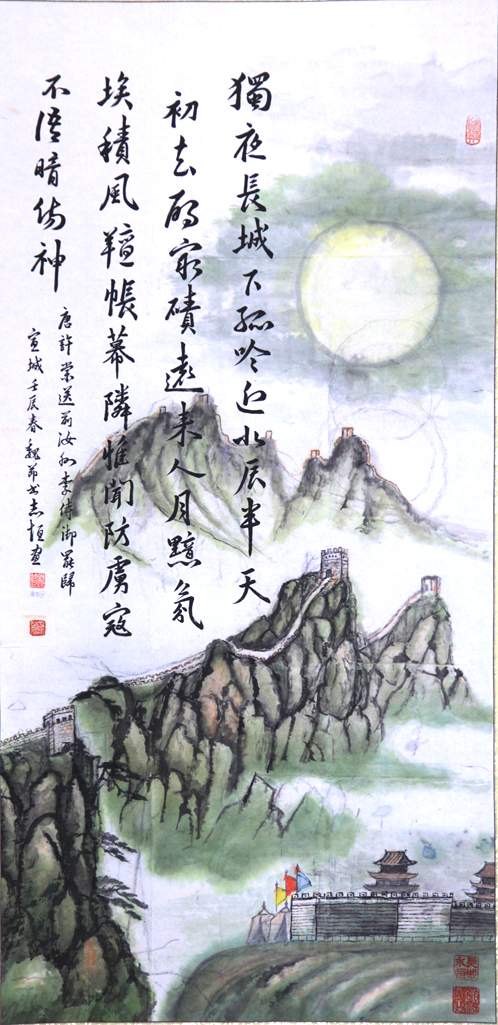 獨夜長城下孤吟近北辰半天
初去雁窮磧遠来人月黯氛
埃積風羶帳幕隣惟聞防虜寇
不語暗傷神
唐許棠送前汝州李侍御罷歸
宣城壬辰春魏節书志恒画